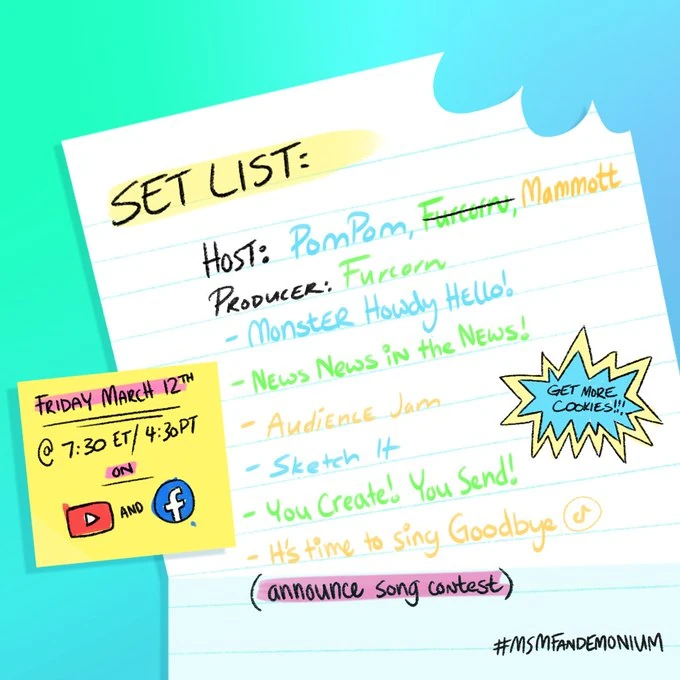 SET LIST:
HOST: PomPom, Furcorn, Mammott
PRODUCER: Furcorn
- MonsteR Howdy Hello!
- News News in the News!
- Audience Jam
- Sketch It
- You Create! You Send!
- It's time to sing Goodbye
(announce song contest)
GET MORE
COOKIES!!!
FRIDAY MARCH 12TH
@ 7:30 ET/ 4:30PT
ON
AND
#MSMFANDEMONIUM